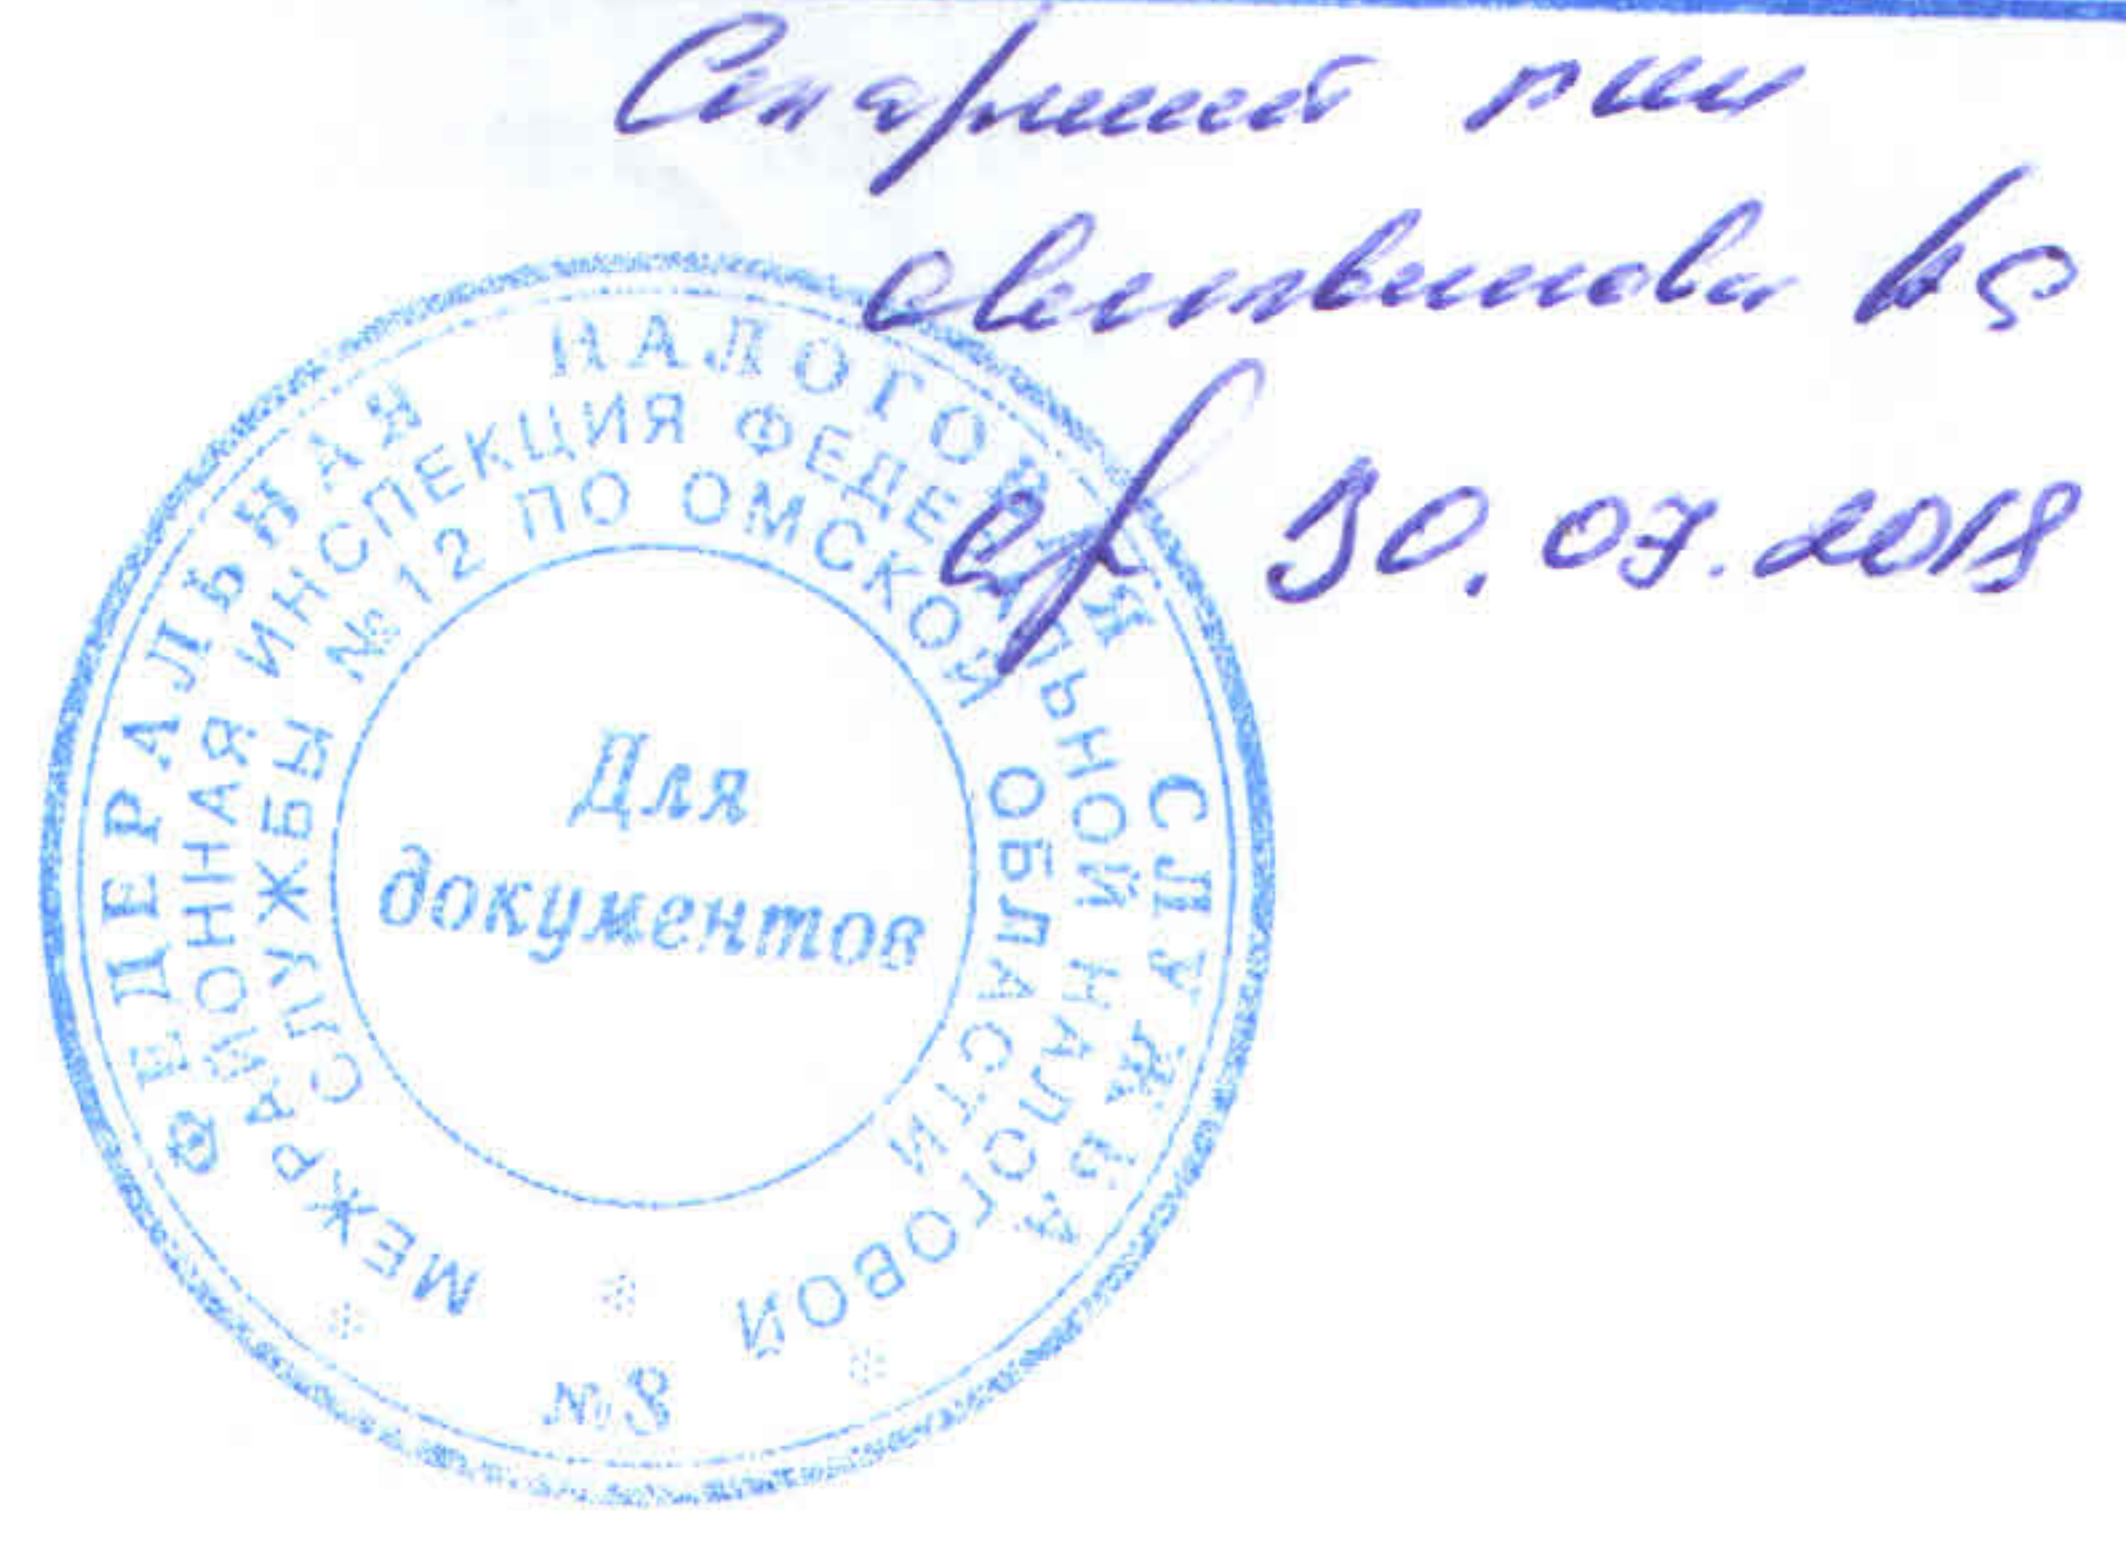 Старший гни
Литвинова
30.07.2018
ФЕДЕРАЛЬНАЯ НАЛОГОВАЯ СЛУЖБА
МЕЖРАЙОННАЯ ИНСПЕКЦИЯ ФЕДЕРАЛЬНОЙ НАЛОГОВОЙ
СЛУЖБЫ №12 ПО ОМСКОЙ ОБЛАСТИ
Для
документов
№8